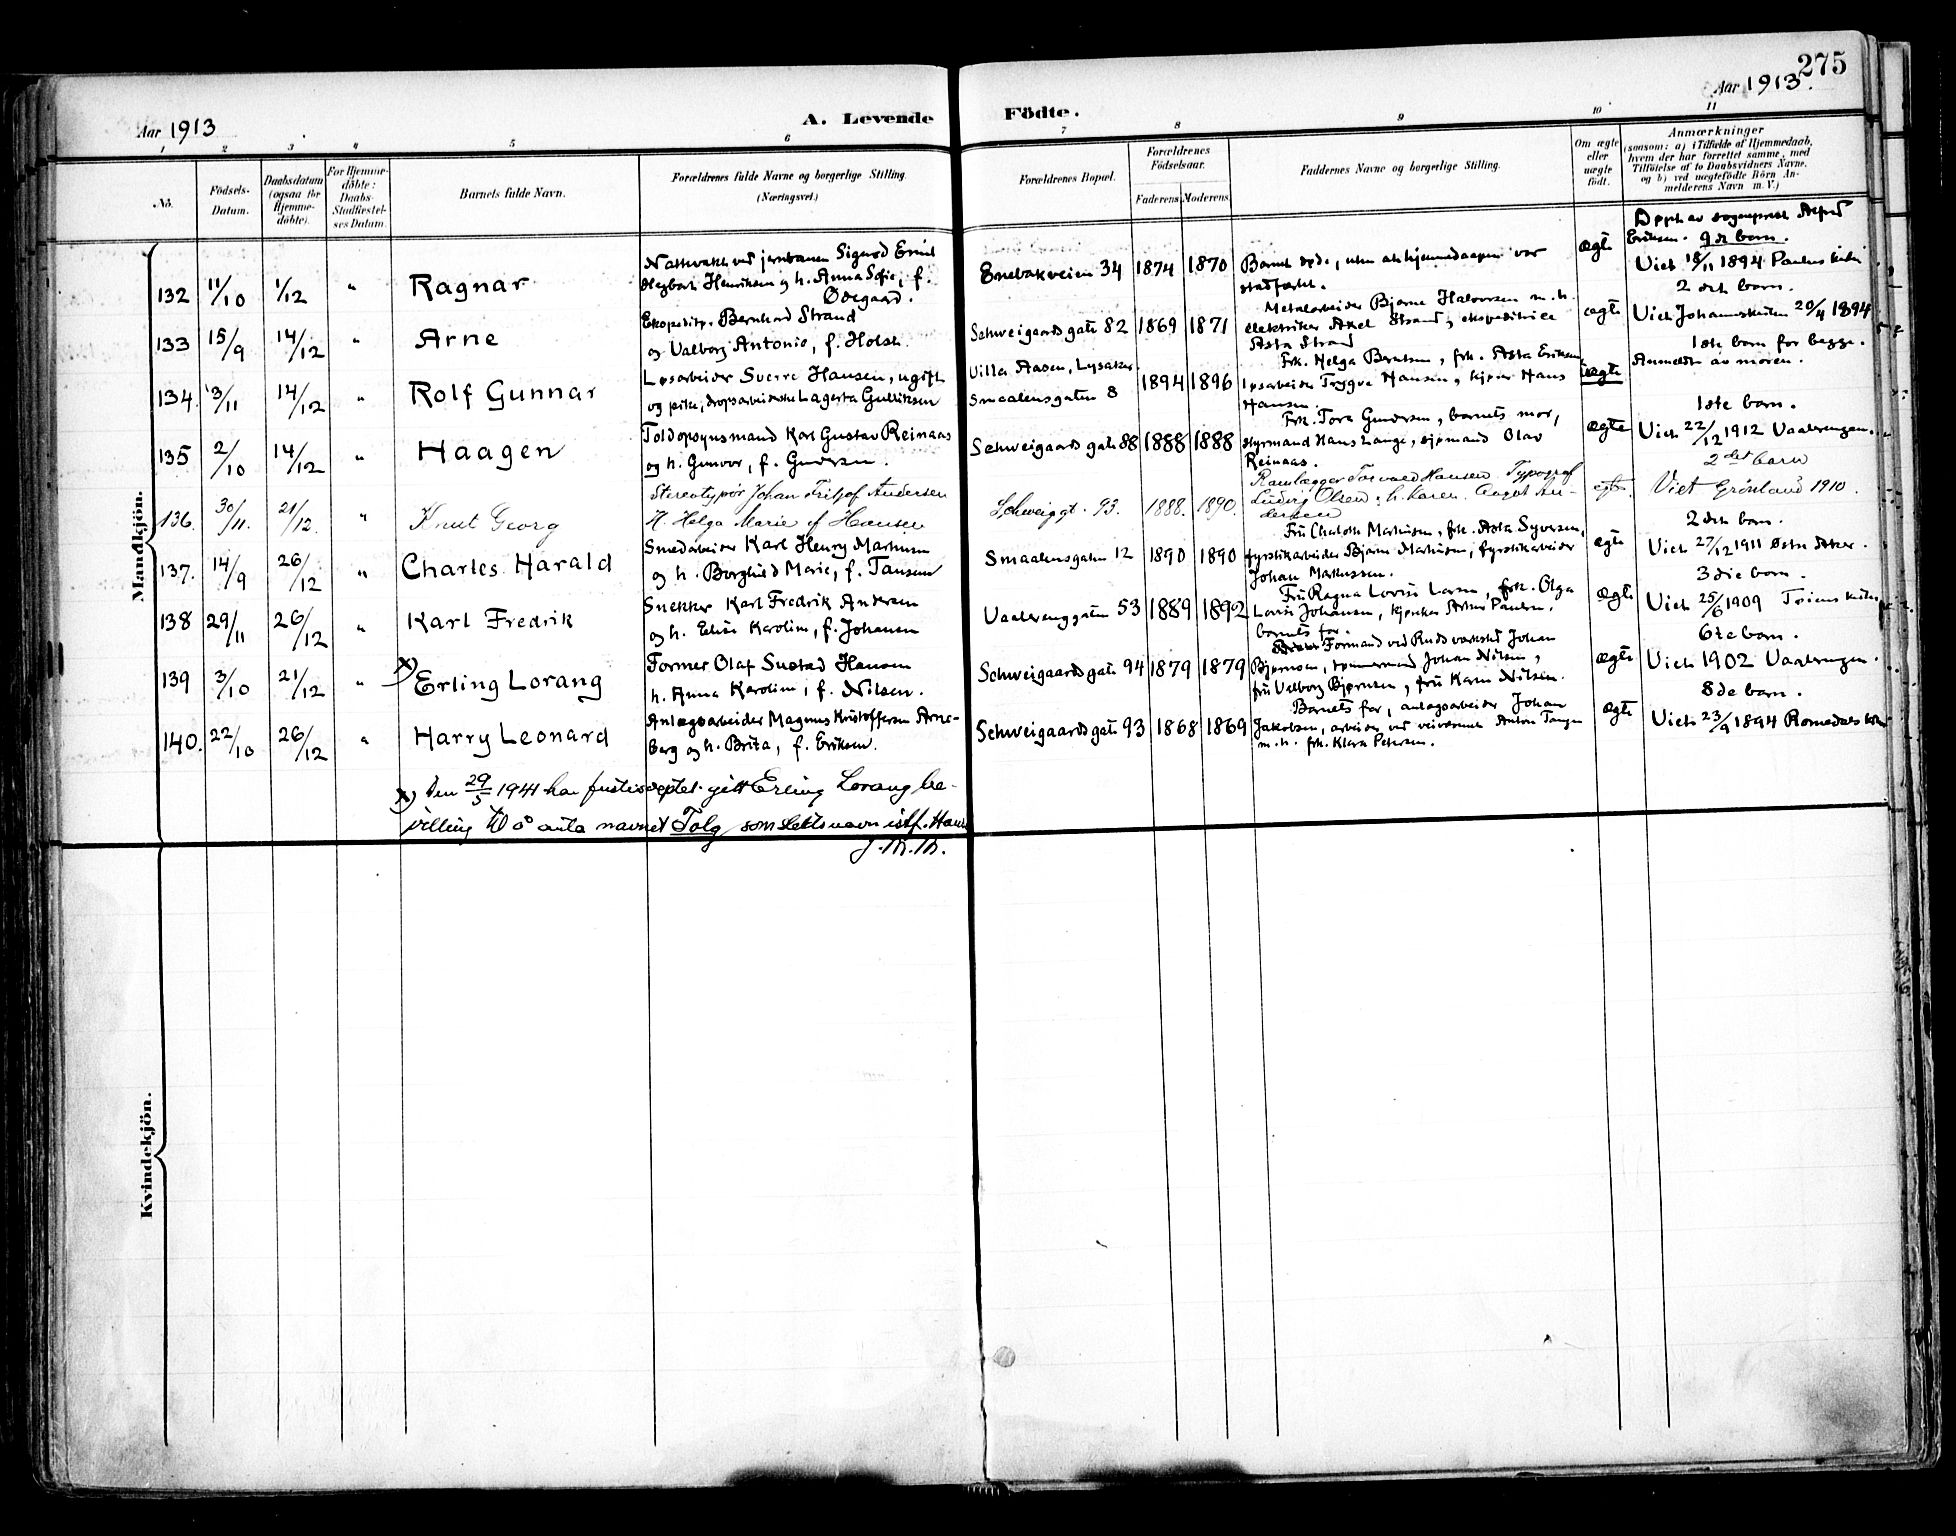 275
Aar 1913
A. Levende Födte.
Aar 1913.
1 2 3 4 5 6 7 8 9 10 11
No.
Födsels-
Datum.
Daabsdatum
(ogsaa for
Hjemme-
döbte).
For Hjemme-
döbte:
Daabs-
Stadfæstel-
ses Datum.
Barnets fulde Navn.
Forældrenes fulde Navne og borgerlige Stilling.
(Næringsvei.)
Forældrenes Bopæl.
Forældrenes
Födselsaar.
Faderens Moderens
Faddernes Navne og borgerlige Stilling.
Om ægte
eller
uægte
födt.
Anmærkninger
(saasom: a) i Tilfælde af Hjemmedaab,
hvem der har forrettet samme, med
Tilföielse af to Daabsvidners Navne,
og b) ved uægtefödte Börn An-
melderens Navn m. V.)
Mandkjön.
132 11/10 1/12 " Ragnar
Nattvakt ved jernbanen Sigurd Emil
Henriksen og h. Anna Sofie, f.
Ødegaard.
Enebakveien 34 1874 1870
Barnet døde, uten at hjemmedaapen var
stadfæstet.
ægte
Døpt av sogneprest Alfred
Eriksen. 9de barn.
Viet 18/11 1894 Paulus kirke
133 15/9 14/12 " Arne
Ekspeditør Bernhard Strand
og Valborg Antonie, f. Holst.
Schweigaards gate 82 1869 1871
Metalarbeider Bjarne Halvorsen m. h.
elektriker Axel Strand, ekspeditrice
Asta Strand
ægte
2 det barn.
Viet Johanneskirken 20/4 1894
134. 13/11 14/12 " Rolf Gunnar
Løsarbeider Sverre Hansen, ugift
og pike, dropsarbeiderske Lagerta Gulliksen
Villa Aasen, Lysaker
Smaalensgaten 8 1894 1896
Frk. Helga Berntsen, frk. Asta Eriksen,
løsarbeider Trygve Hansen, kjører Hans
Hansen.
uægte
1ste barn for begge.
Anmeldt av moren.
135 2/10 14/12 " Haagen
Toldopsynsmand Karl Gustav Reinaas
og h. Gunvor, f. Gundersen.
Schweigaards gate 88 1888 1888
Frk. Tora Gundersen, barnets mor,
styrmand Hans Lange, sjømand Olav
Reinaas.
ægte
1ste barn.
Viet 22/12 1912 Vaalerengen.
136. 30/11. 21/12. " Knut Georg
Stereotypør Johan Fritjof Andersen
H. Helga Marie f Hansen
Schweiggt. 93. 1888. 1890.
Torvald Hansen Typograf
Ludvig Olsen, h. Karen. Aagot An-
dersen
egte.
2det barn
Viet Grönland 1910.
137. 14/9 26/12 " Charles Harald
Smedarbeider Karl Henry Martinsen
og h. Borghild Marie, f. Jansen
Smaalensgaten 12 1890 1890
Fru Charlotte Martinsen, frk. Asta Syversen,
fyrstikarbeider Bjarne Martinsen, fyrstikarbeider
Johan Markussen.
ægte
2 det barn.
Viet 27/12 1911 Østre Aker.
138 29/11 26/12 " Karl Fredrik
Snekker Karl Fredrik Andersen
og h. Elise Karoline, f. Johansen
Vaalerenggaten 53 1889 1892
Fru Ragna Lovise Larsen, frk. Olga
Lovise Johansen, kjøpm. Artur Paulsen,
barnets far.
ægte
3 die barn.
Viet 25/6 1909
139 3/10 21/12 " x) Erling Lorang
Former Olaf Sustad Hansen
h. Anna Karoline, f. Nilsen.
Schweigaards gate 94 1879 1879
Formand ved Ruds verksted Johan
Bjørnsen, tømmermand Johan Nilsen,
fru Valborg Bjørnsen, fru Karen Nilsen.
ægte
6te barn.
Viet 1902 Vaalerengen.
140. 22/10 26/12 " Harry Leonard
Anlægsarbeider Magnus Kristoffersen Arne-
berg og h. Brita, f. Eriksen.
Schweigaards gate 93 1868 1869
Barnets far, anlægsarbeider Johan
Jakobsen, arbeider ved veivæsenet Anton Tangen
m. h. frk. Klara Petersen.
ægte
8 de barn.
Viet 23/9 1894 Romedals kirke
x) Den 29/5 1941 har justisdeptet gitt Erling Lorang be-
villing til å anta navnet Tolg som slektsnavn istf. Hansen
J. Th. Th.
Kvindekjön.